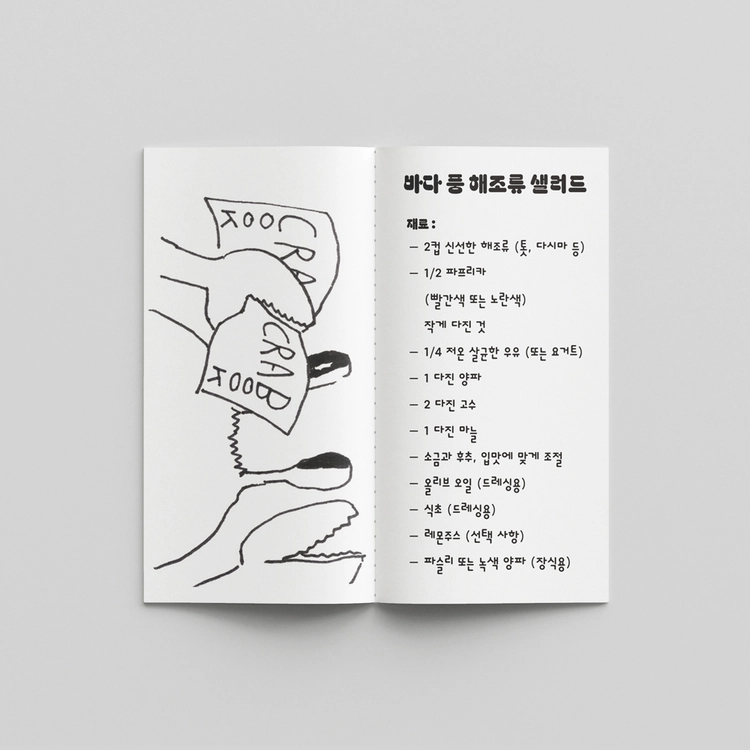 CRAB
COOK
CRAB
COOK
바다 풍 해조류 샐러드
재료 :
– 2컵 신선한 해조류 (톳, 다시마 등)
– 1/2 파프리카
(빨간색 또는 노란색)
작게 다진 것
– 1/4 저온 살균한 우유 (또는 요거트)
– 1 다진 양파
– 2 다진 고수
– 1 다진 마늘
– 소금과 후추, 입맛에 맞게 조절
– 올리브 오일 (드레싱용)
– 식초 (드레싱용)
– 레몬주스 (선택 사항)
– 파슬리 또는 녹색 양파 (장식용)